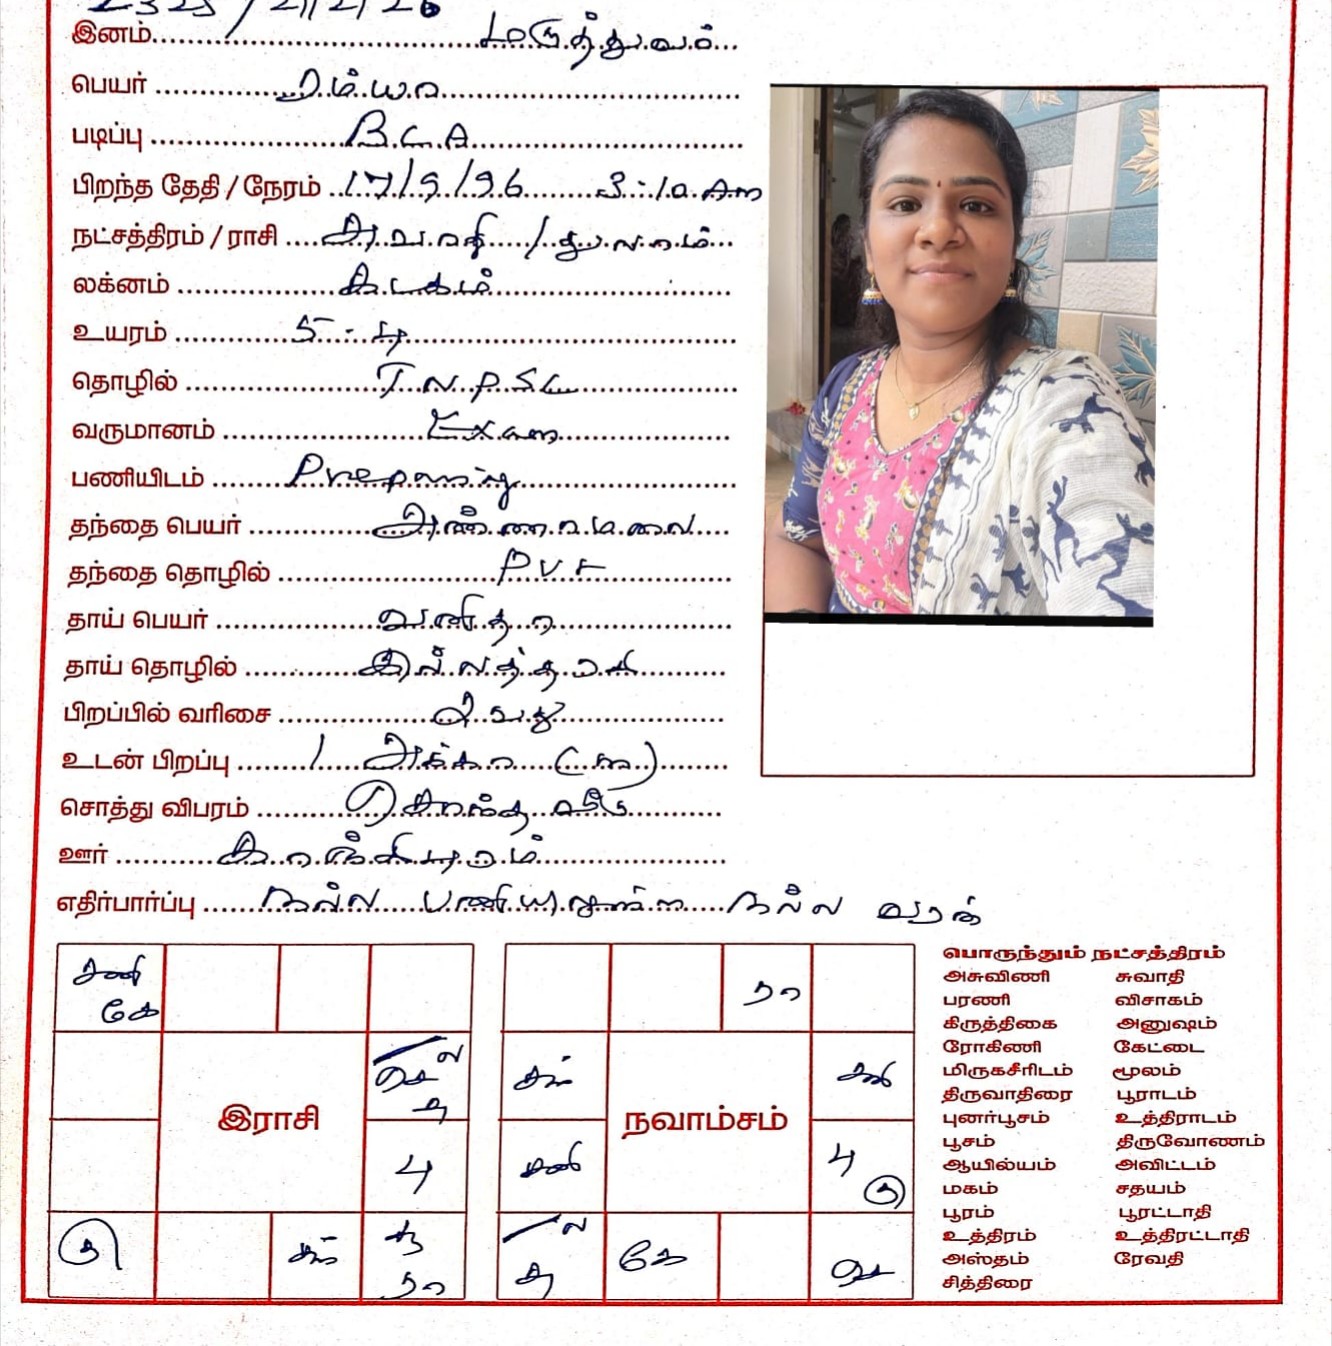 2325 / 21/2/26
இனம் மருத்துவம்
பெயர் ரம்யா
படிப்பு B.C.A
பிறந்த தேதி / நேரம் 17/9/96 3:10 Am
நட்சத்திரம் / ராசி சுவாதி / துலாம்
லக்னம் கடகம்
உயரம் 5:4
தொழில் T.N.P.S.C
வருமானம் Exam
பணியிடம் Preparing
தந்தை பெயர் அண்ணாமலை
தந்தை தொழில் P.V.F
தாய் பெயர் வனிதா
தாய் தொழில் இல்லத்தரசி
பிறப்பில் வரிசை 2வது
உடன் பிறப்பு 1 அக்கா (ம)
சொத்து விபரம் சொந்த வீடு
ஊர் காஞ்சிபுரம்
எதிர்பார்ப்பு நல்ல பணியுடைய நல்ல வரன்
சனி
கே
ல
செ
சு
பு
கு
சந்
சூ
ரா
இராசி
ரா
சந்
சுக்
சனி
பு
சூ
ல
கு
கே
செ
நவாம்சம்
பொருந்தும் நட்சத்திரம்
அசுவிணி சுவாதி
பரணி விசாகம்
கிருத்திகை அனுஷம்
ரோகிணி கேட்டை
மிருகசீரிடம் மூலம்
திருவாதிரை பூராடம்
புனர்பூசம் உத்திராடம்
பூசம் திருவோணம்
ஆயில்யம் அவிட்டம்
மகம் சதயம்
பூரம் பூரட்டாதி
உத்திரம் உத்திரட்டாதி
அஸ்தம் ரேவதி
சித்திரை